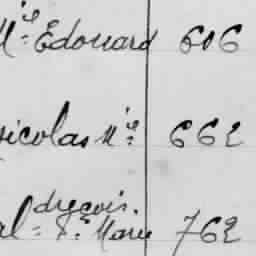 M.ie Edouard 606
Nicolas M.ie 662
Marie 762